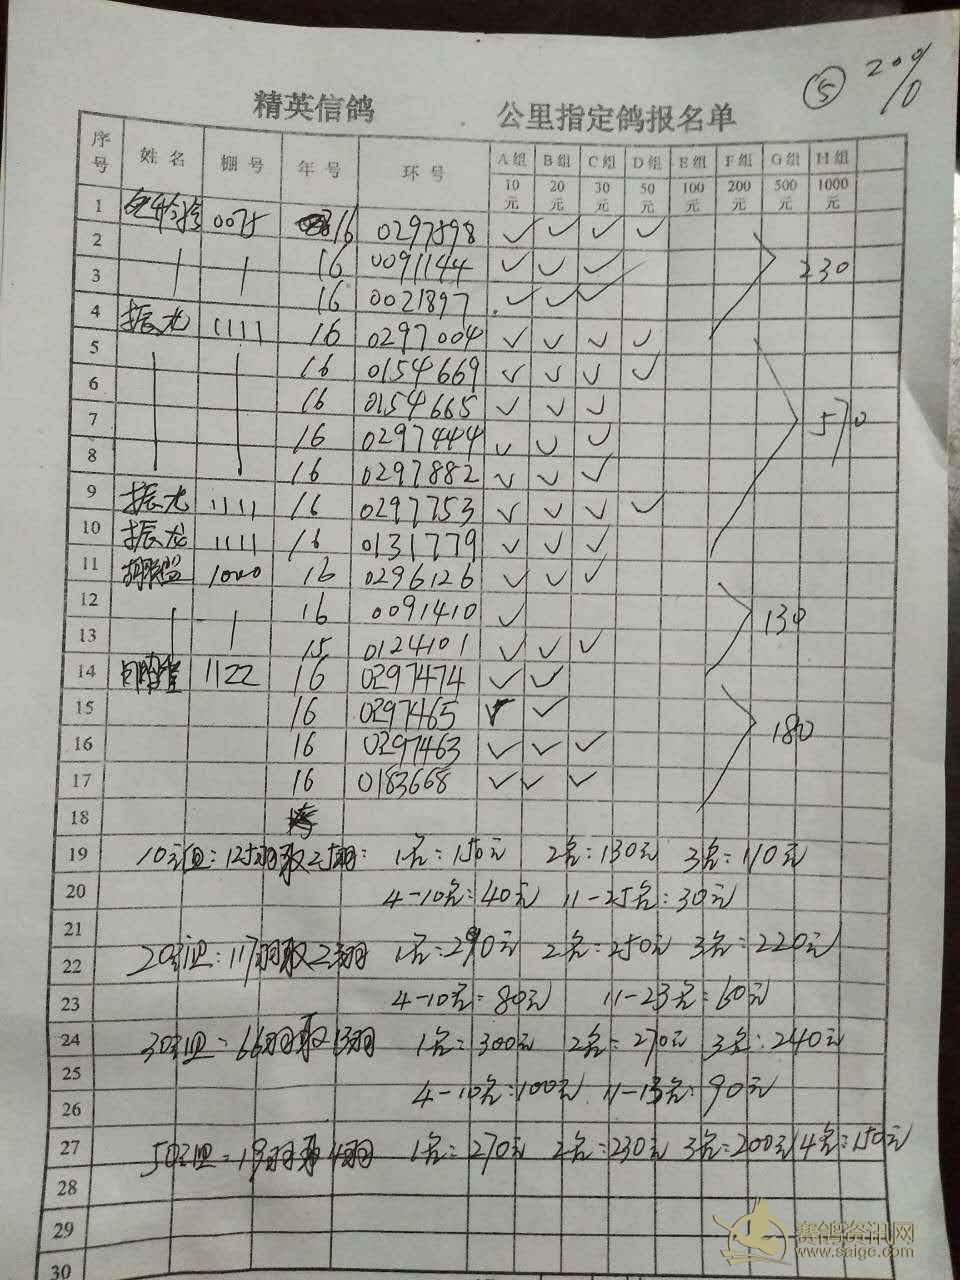 ⑤ 20%
精英信鸽 公里指定鸽报名单
序号 姓名 棚号 年号 环号 A组 B组 C组 D组 E组 F组 G组 H组
10元 20元 30元 50元 100元 200元 500元 1000元
1 0078 16 0297898 ✓ ✓ ✓ ✓
2 | | 16 0091144 ✓ ✓ ✓ 230
3 16 0021897 ✓ ✓ ✓
4 振龙 1111 16 0297004 ✓ ✓ ✓ ✓
5 16 0154669 ✓ ✓ ✓ ✓
6 16 0154665 ✓ ✓ ✓
7 16 0297444 ✓ ✓ ✓ 570
8 16 0297882 ✓ ✓ ✓
9 振龙 1111 16 0297753 ✓ ✓ ✓ ✓
10 振龙 1111 16 0131779 ✓ ✓ ✓
11 1000 16 0296126 ✓ ✓ ✓
12 | | 16 0091410 ✓ 130
13 15 0124101 ✓ ✓ ✓
14 1122 16 0297474 ✓ ✓
15 16 0297465 ✓ ✓ 180
16 16 0297463 ✓ ✓ ✓
17 16 0183668 ✓ ✓ ✓
18
19 10元组:125羽取25羽: 1名=150元 2名:130元 3名:110元
20 4-10名:40元 11-25名:30元
21
22 20元组:117羽取23羽 1名=290元 2名=250元 3名=220元
23 4-10名=80元 11-23名:60元
24 30元组=66羽取13羽 1名=300元 2名=270元 3名:240元
25
26 4-10名:100元 11-13名:90元
27 50元组=19羽取4羽 1名=270元 2名=230元 3名=200元 4名=150元
28
29
30
赛鸽资讯网
www.saige.com